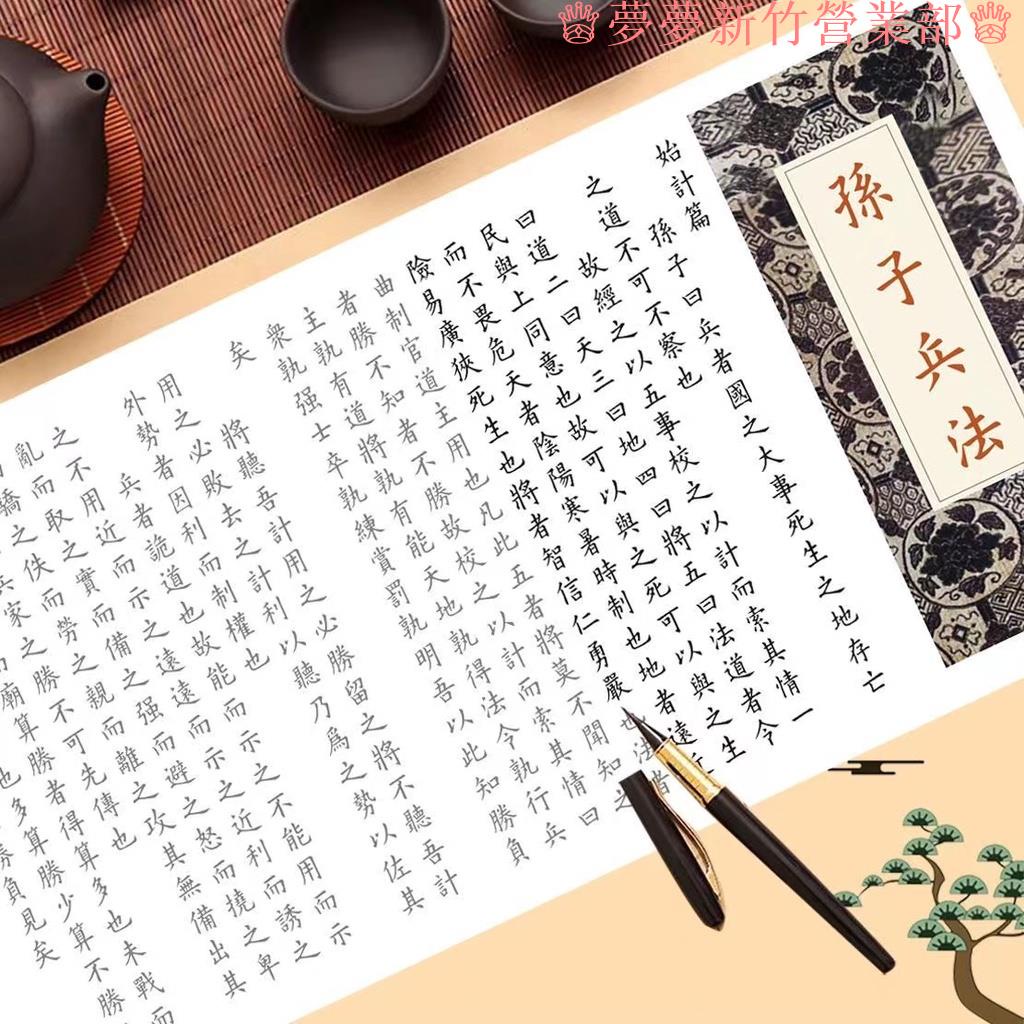 夢夢新竹營業部
孫子兵法
始計篇
孫子曰兵者國之大事死生之地存亡
之道不可不察也
故經之以五事校之以計而索其情一
曰道二曰天三曰地四曰將五曰法道者令
民與上同意也故可以與之死可以與之生
而不畏危天者陰陽寒暑時制也地者遠近
險易廣狹死生也將者智信仁勇嚴也法者
曲制官道主用也凡此五者將莫不聞知之
者勝不知者不勝故校之以計而索其情曰
主孰有道將孰有能天地孰得法令孰行兵
衆孰强士卒孰練賞罰孰明吾以此知勝負
矣
將聽吾計用之必勝留之將不聽吾計
用之必敗去之計利以聽乃爲之勢以佐其
外勢者因利而制權也
兵者詭道也故能而示之不能用而示
之不用近而示之遠遠而示之近利而誘之
亂而取之實而備之强而避之怒而撓之卑
驕之佚而勞之親而離之攻其無備出其
兵家之勝不可先傳也
廟算勝者得算多也未戰而
也多算勝少算不勝
勝負見矣